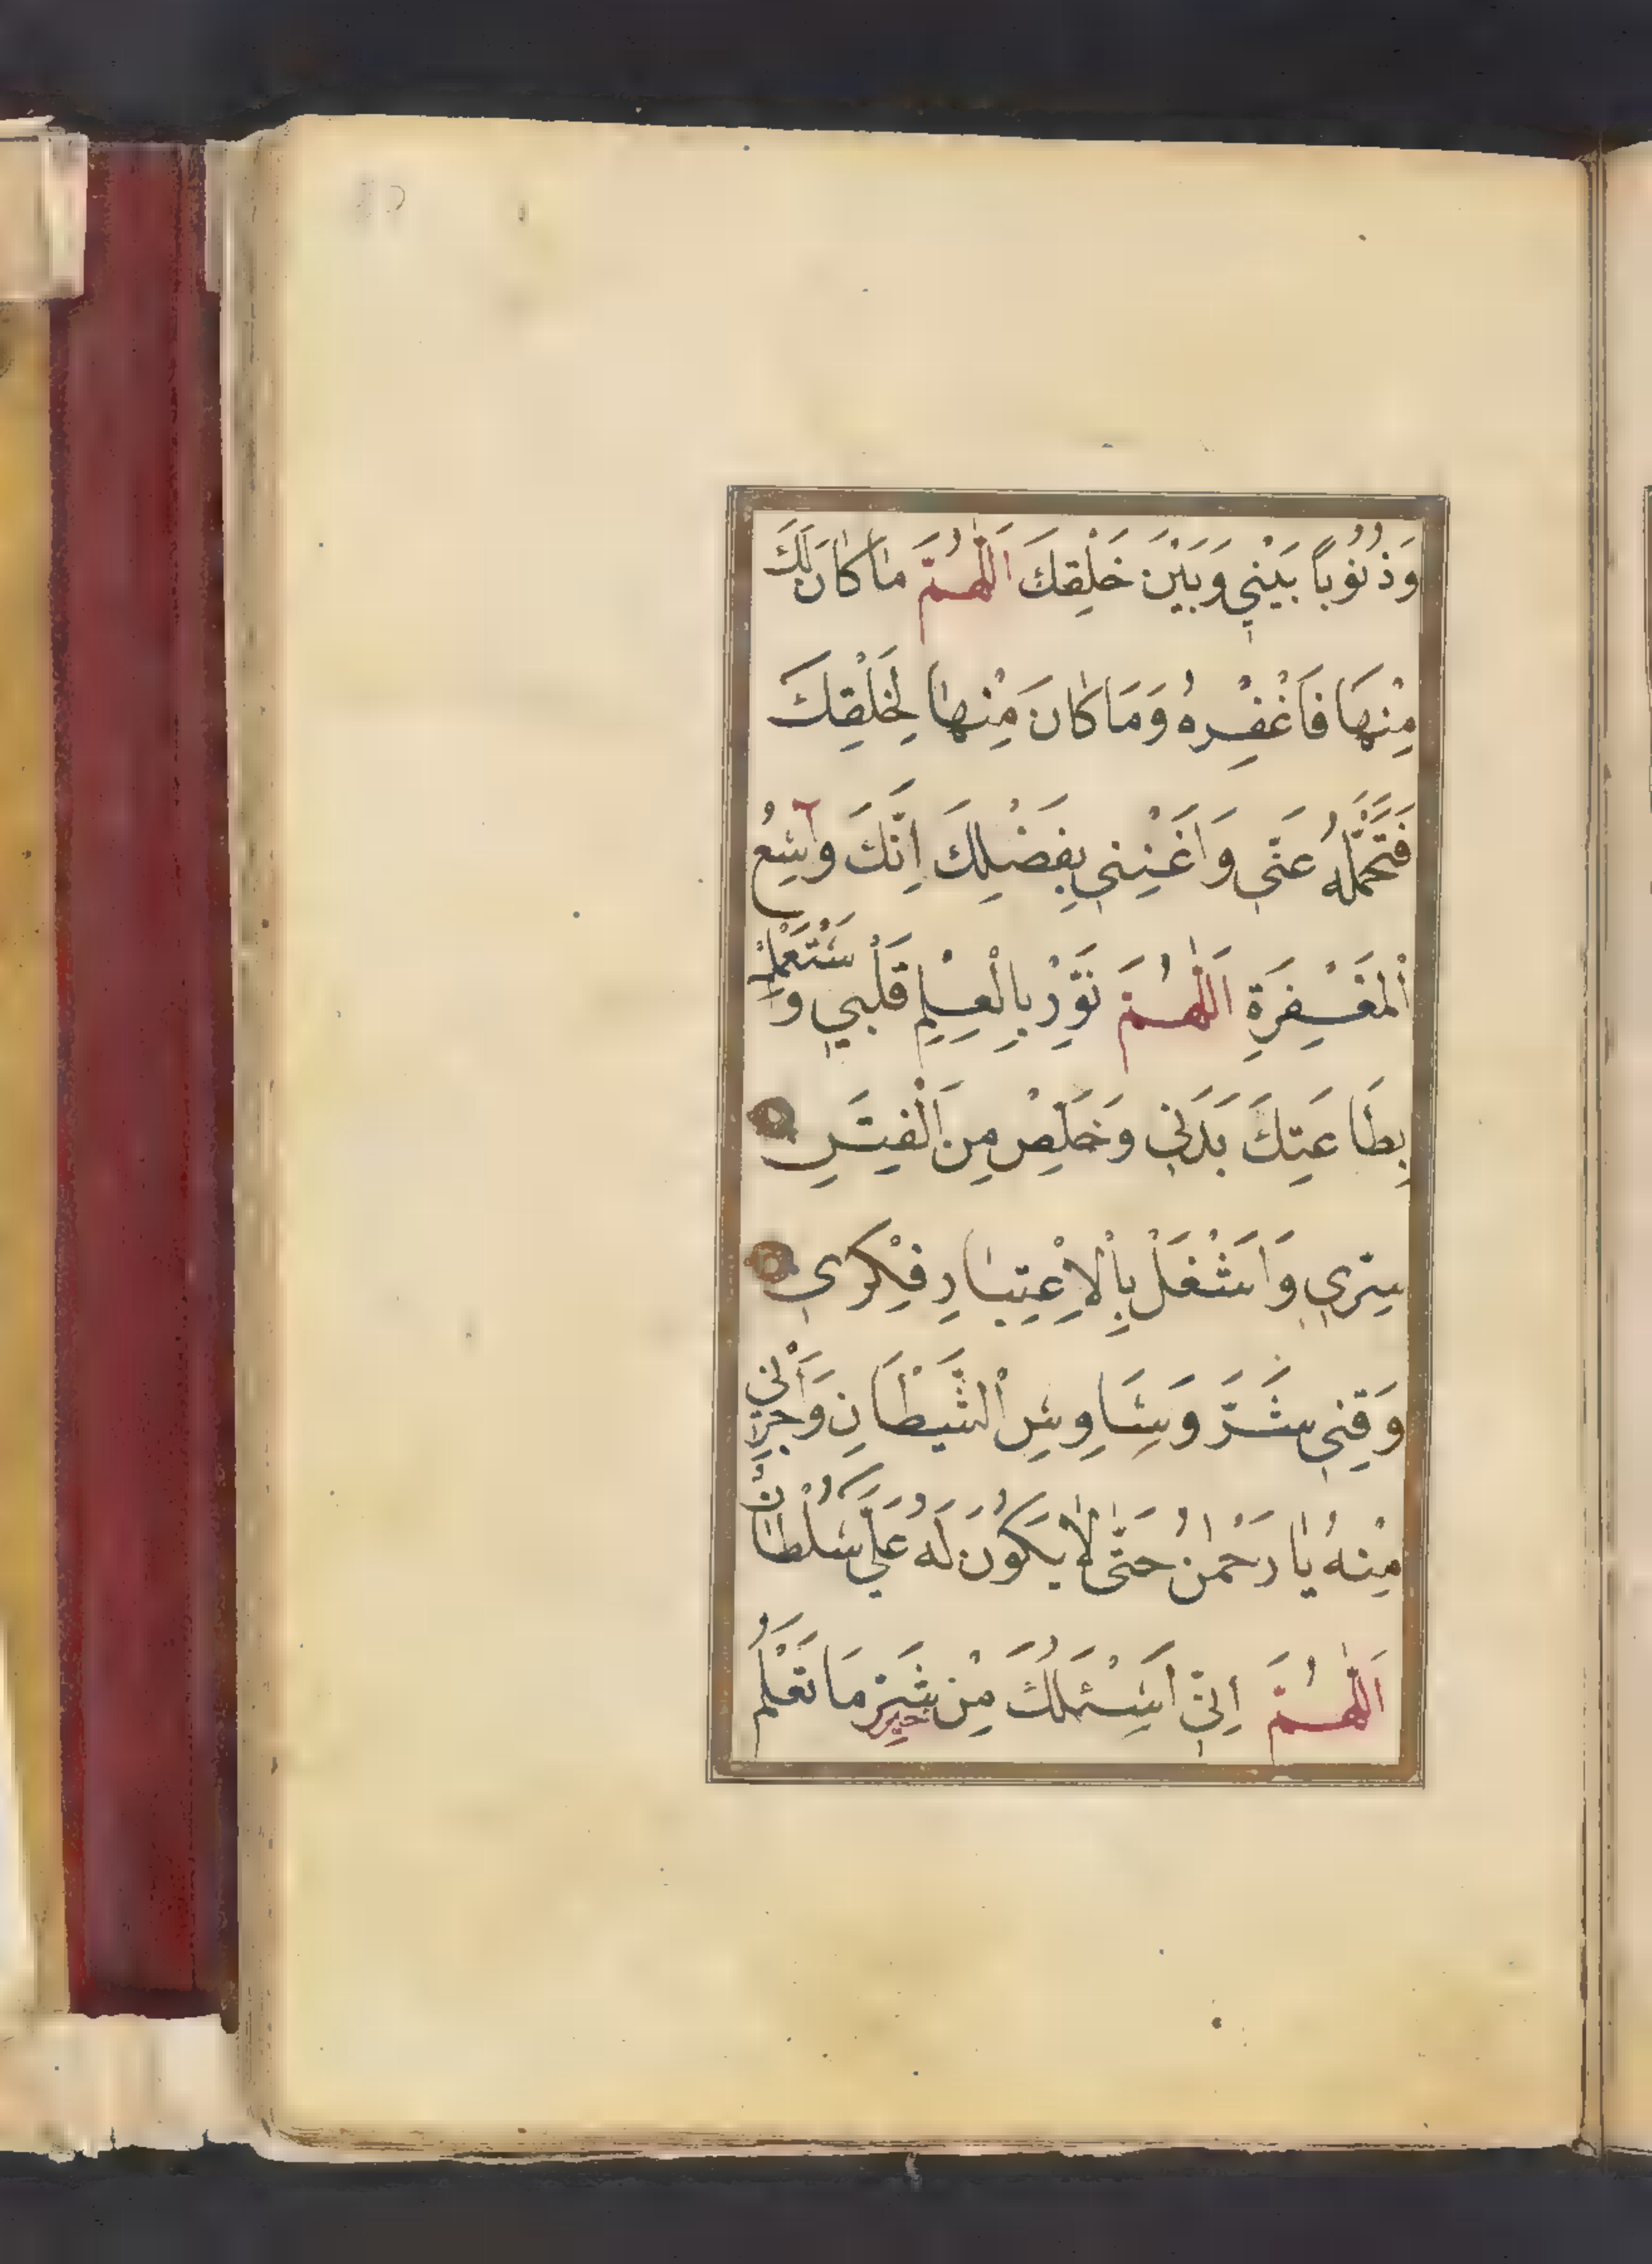 وَذُنُوْباً بَيْنِي وَبَيْنَ خَلْقِكَ اَللّٰهُمَّ مٰاكٰانَ لَكَ
مِنْهَا فَاغْفِرْهُ وَمَاكٰانَ مِنْهٰا لِخَلْقِكَ
فَتَحَمَّلْهُ عَنّي وَاَغْنِنِي بِفَضْلِكَ اِنَّكَ وٰاسِعُ
الْمَغْفِرَةِ اَللّٰهُمَّ نَوِّرْ بِالْعِلْمِ قَلْبِي وَسْتَعْمِلْ
بِطَاعَتِكَ بَدَنِي وَخَلِّصْ مِنَ الْفِتَنِ
سِرِّي وَاشْغَلْ بِالْاِعْتِبٰارِ فِكْرِي
وَقِنِي شَرَّ وَسَاوِسِ الشَّيْطَانِ وَاَجِرْنِي
مِنْهُ يٰا رَحْمٰنُ حَتّٰى لٰا يَكُوْنَ لَهُ عَلَيَّ سُلْطَانٌ
اَللّٰهُمَّ اِنّي اَسْئَلُكَ مِنْ خَيْرِ مَا تَعْلَمُ